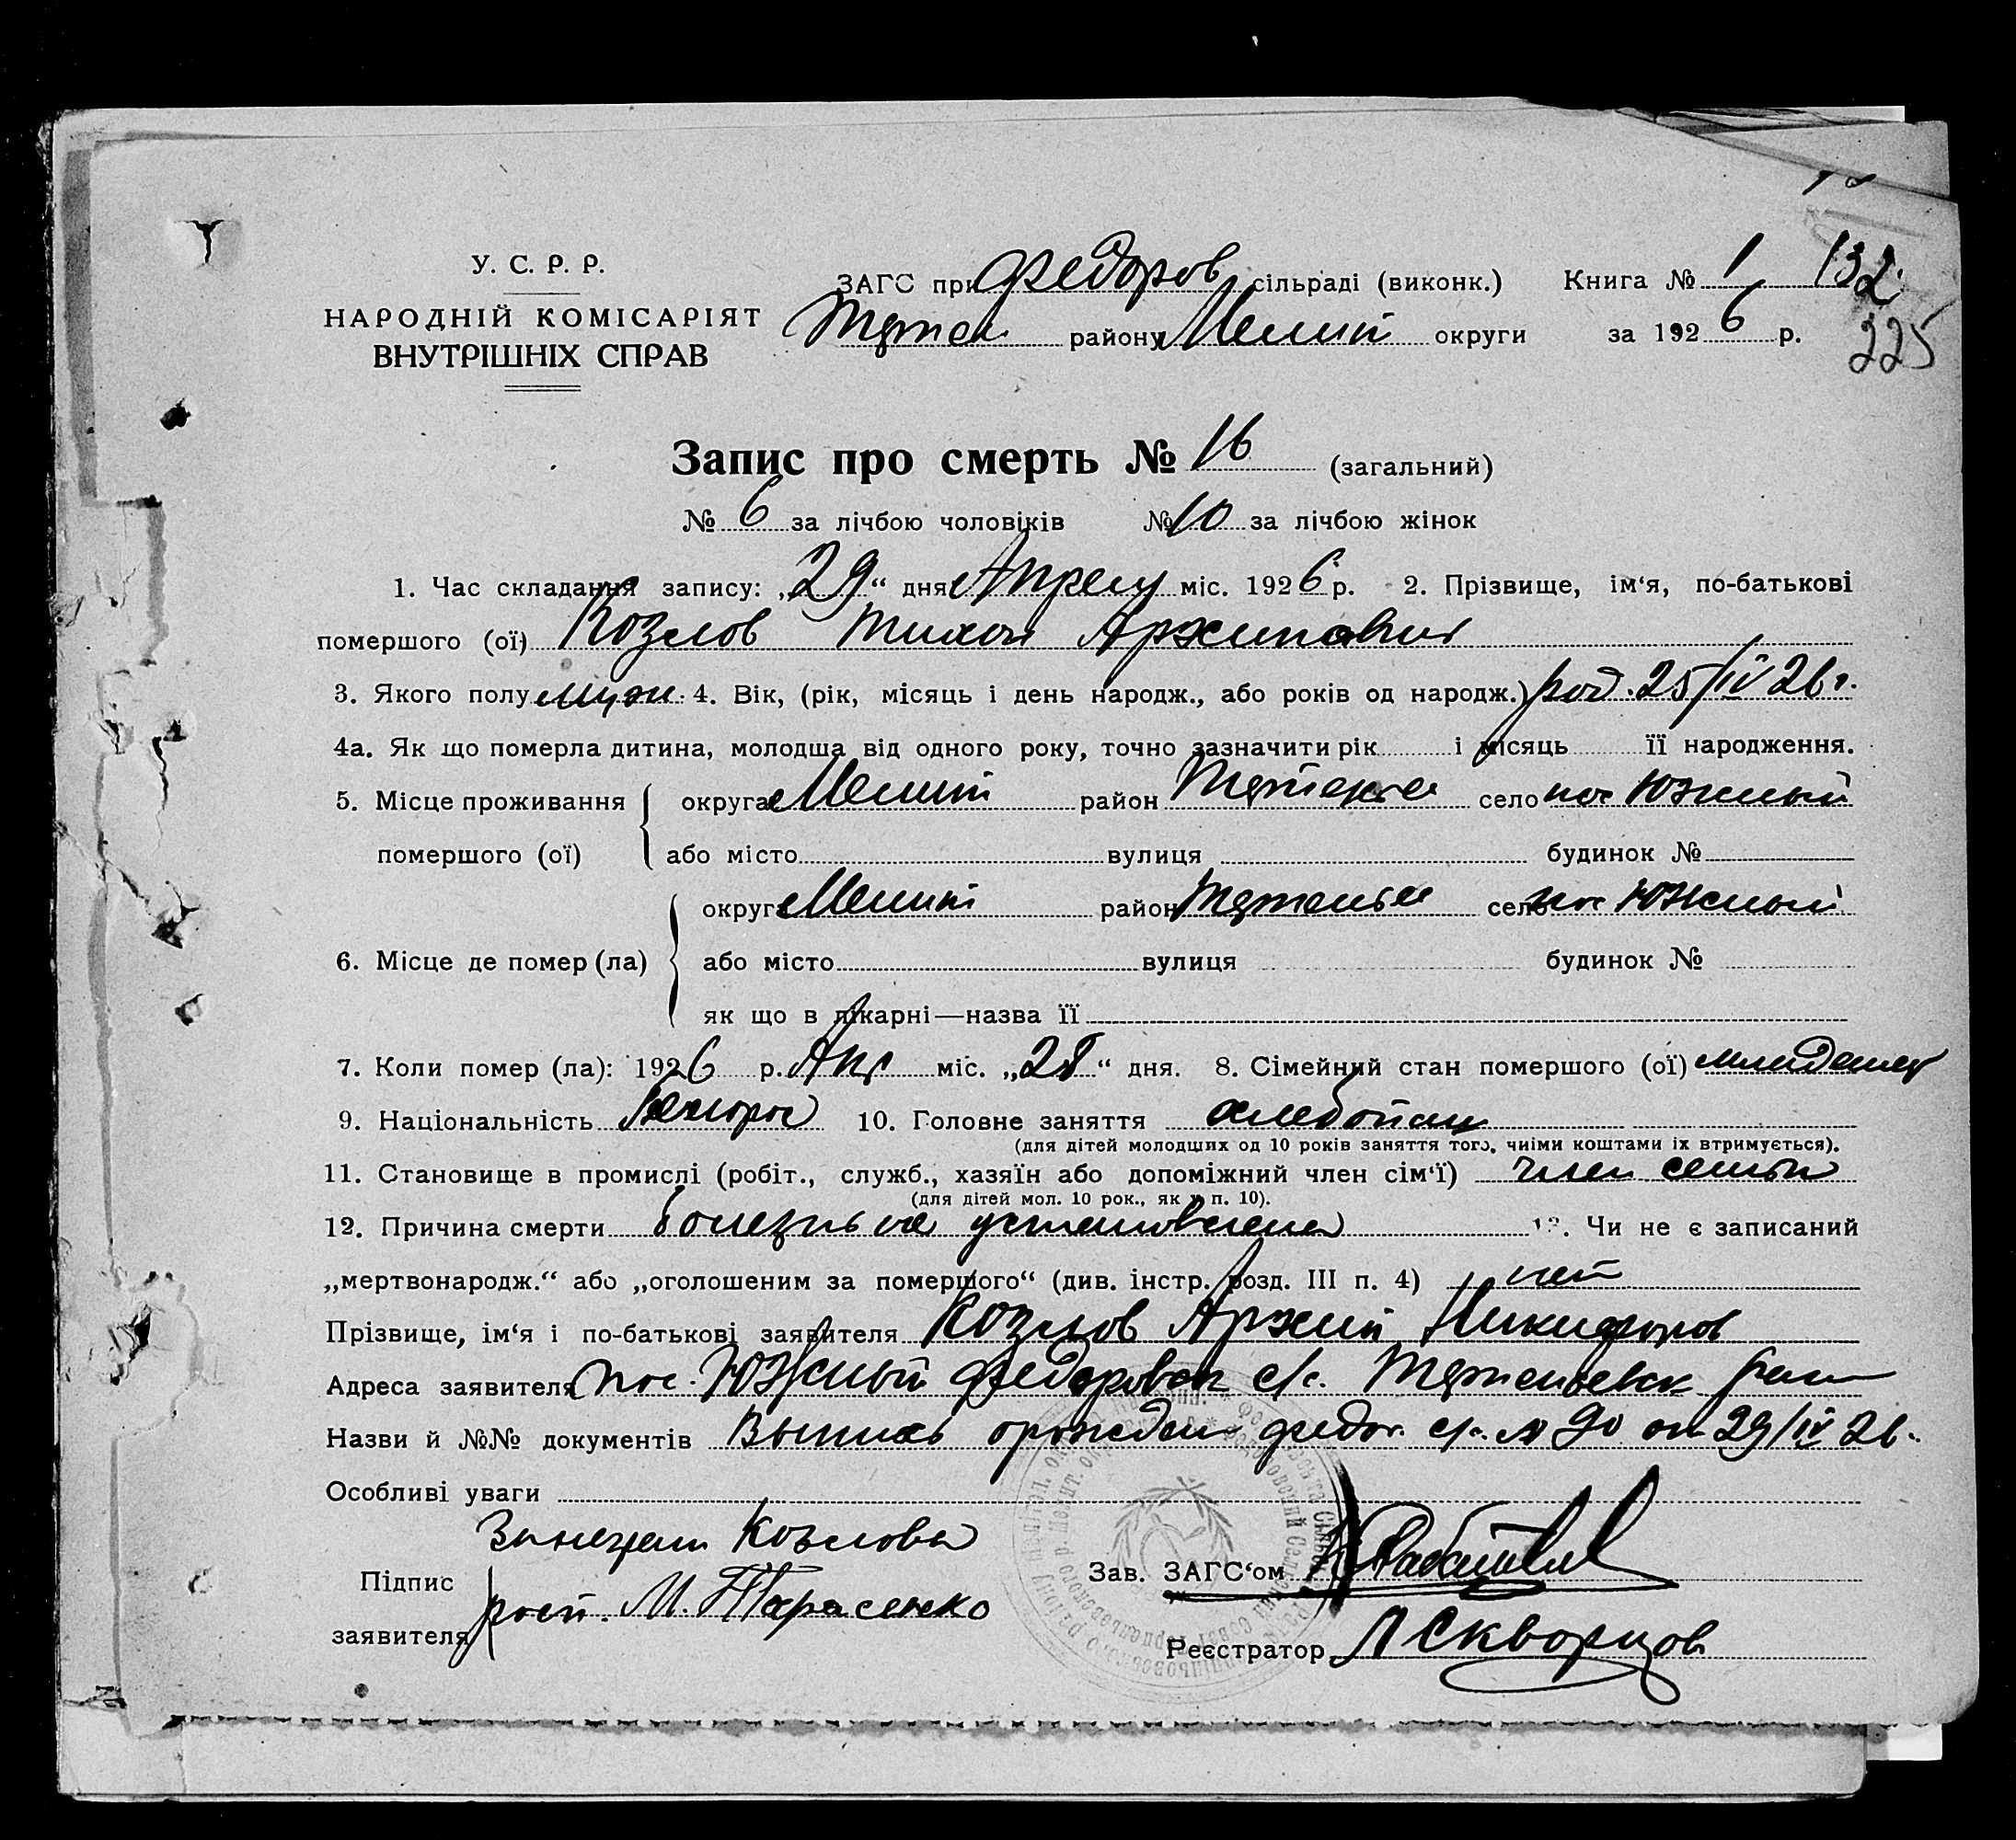 132.
225
У. С. Р. Р.
НАРОДНІЙ КОМІСАРІЯТ
ВНУТРІШНІХ СПРАВ
ЗАГС при Федоров сільраді (виконк.) Книга № 1
району Мелит округи за 1926 р.
Запис про смерть № 16 (загальний)
№ 6 за лічбою чоловіків № 10 за лічбою жінок
1. Час складання запису: „29“ дня Апреля міс. 1926 р. 2. Прізвище, ім‘я, по-батькові
помершого (ої) Козлов Тихон Архипович
3. Якого полу муж. 4. Вік, (рік, місяць і день народж., або років од народж.) род. 25/IV 26 г.
4а. Як що померла дитина, молодша від одного року, точно зазначити рік і місяць її народження.
5. Місце проживання округа Мелит район село пос Южный
помершого (ої) або місто вулиця будинок №
округа Мелит район село пос Южный
6. Місце де помер (ла) або місто вулиця будинок №
як що в лікарні—назва її
7. Коли помер (ла): 1926 р. Апр міс. „28“ дня. 8. Сімейний стан помершого (ої) младенец
9. Національність Великорос 10. Головне заняття хлебопаш
(для дітей молодших од 10 років заняття того, чиїми коштами їх втримується).
11. Становище в промислі (робіт., служб., хазяїн або допоміжний член сім‘ї) член семьи
(для дітей мол. 10 рок., як у п. 10).
12. Причина смерти болезнь не установлена 13. Чи не є записаний
„мертвонародж.“ або „оголошеним за помершого“ (див. інстр. розд. III п. 4) нет
Прізвище, ім‘я і по-батькові заявителя Козлов Архип Никифоров
Адреса заявителя пос. Южный Федоровск с/с. Терпеньевск район
Назви й №№ документів Выпись о рожден федор. с/с. № 90 от 29/IV 26.
Особливі уваги
За неграм Козлова
Підпис Зав. ЗАГС‘ом
заявителя росп. М. Тарасенко
Реєстратор Л Скворцов